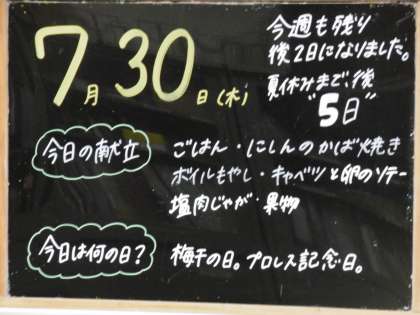 7月30日(木)
今週も残り
後2日になりました。
夏休みまで、後
"5日"
今日の献立
ごはん・にしんのかば焼き
ボイルもやし・キャベツと卵のソテー
塩肉じゃが・果物
今日は何の日?
梅干の日。プロレス記念日。